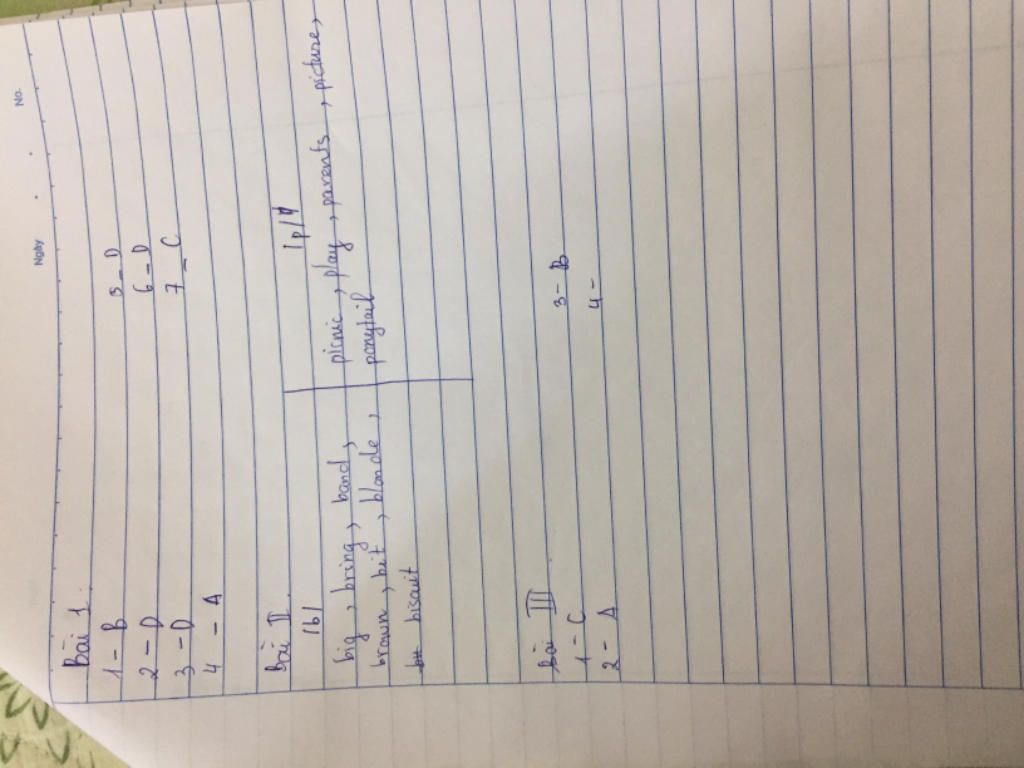 No.
Ngày
Bài 1.
1 - B 5 - D
2 - D 6 - D
3 - D 7 - C
4 - A
Bài II.
/b/ /p/
big, bring, band, picnic, play, parents, picture,
brown, bit, blonde, ponytail
biscuit
Bài III
1 - C 3 - B
2 - A 4 -